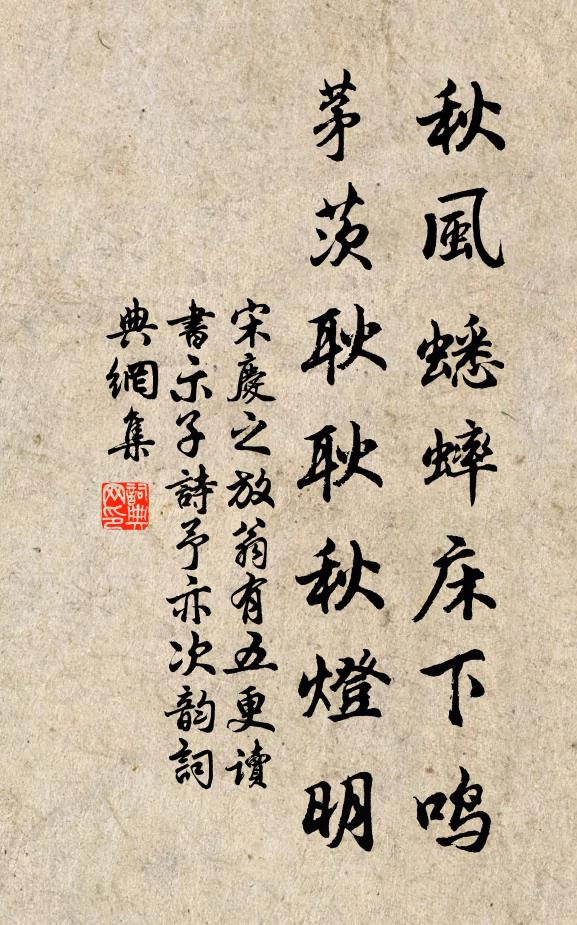 秋風蟋蟀床下鳴
茅茨耿耿秋燈明
宋慶之放翁有五更讀
書示子詩予亦次韵詞
典網集
詞典
网印